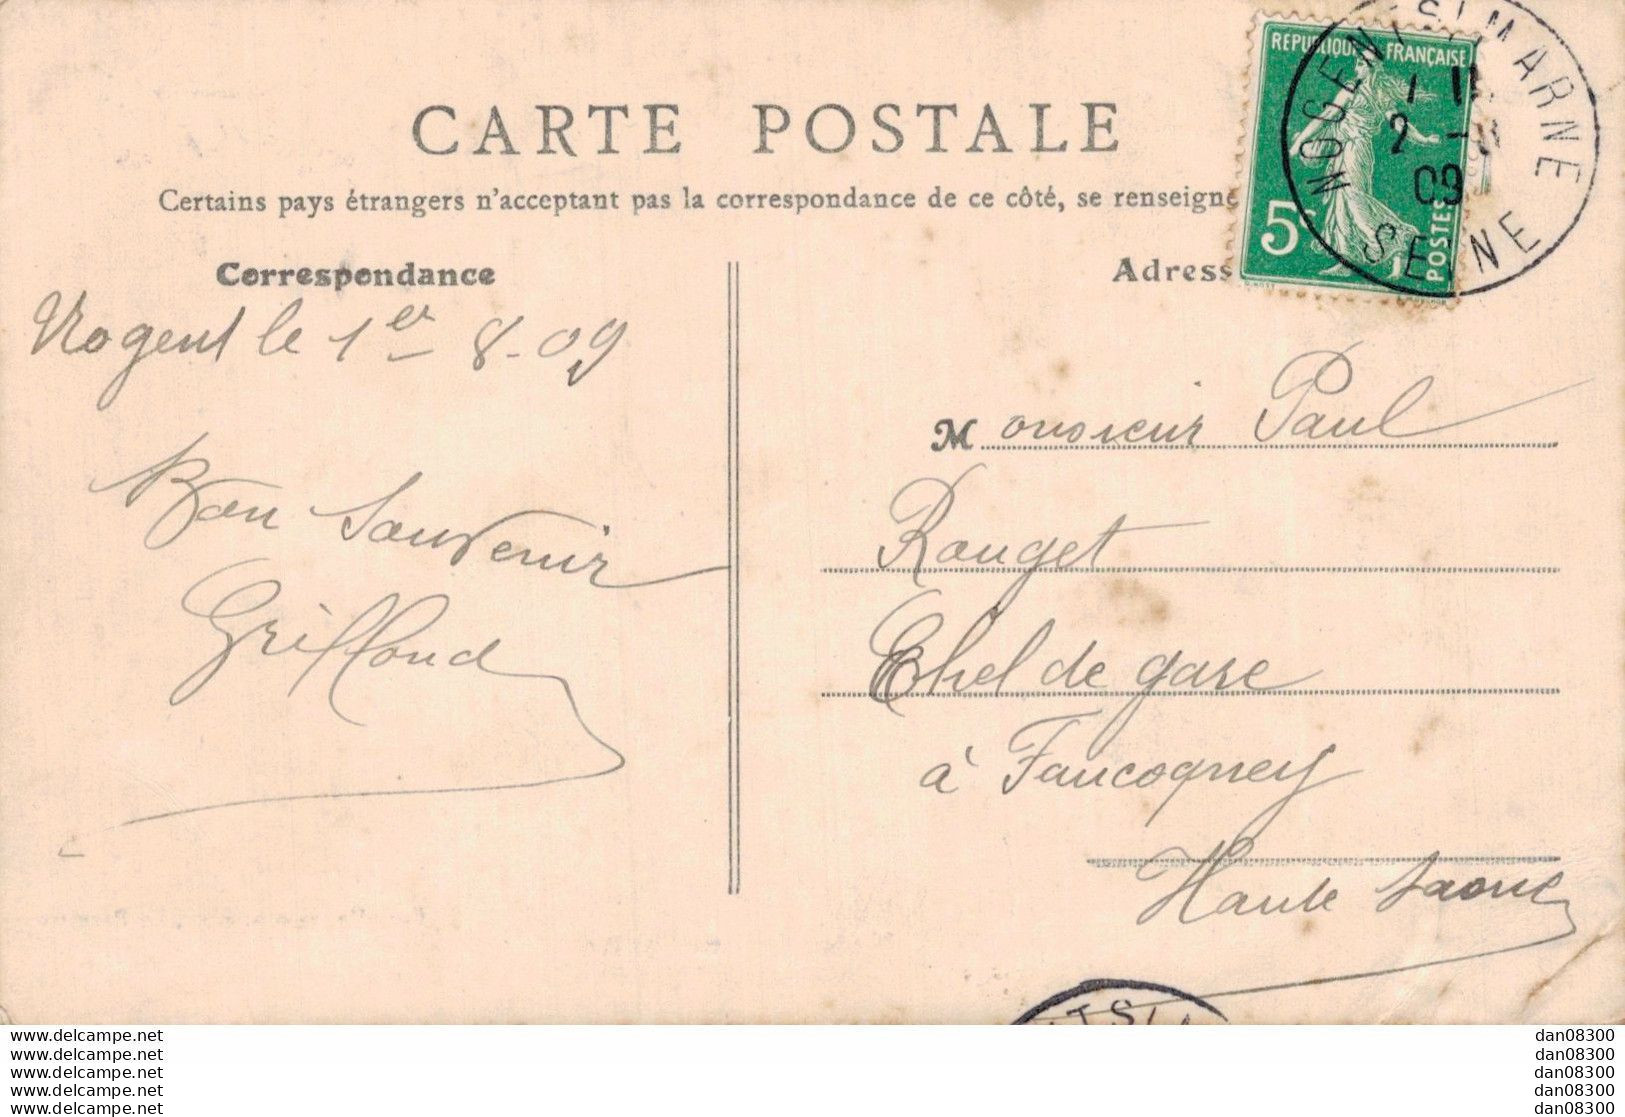 CARTE POSTALE
Certains pays étrangers n'acceptent pas la correspondance de ce côté, se renseigne
RÉPUBLIQUE FRANÇAISE
5c
POSTES
NOGENT S/ MARNE
2 -
09
SEINE
Correspondance
Nogent le 1er 8-09
Bon Souvenir
Griffond
Adress
Monsieur Paul
Rouget
Chef de gare
à Faucogney
Haute Saone
TS
www.delcampe.net
www.delcampe.net
www.delcampe.net
www.delcampe.net
www.delcampe.net
dan08300
dan08300
dan08300
dan08300
dan08300